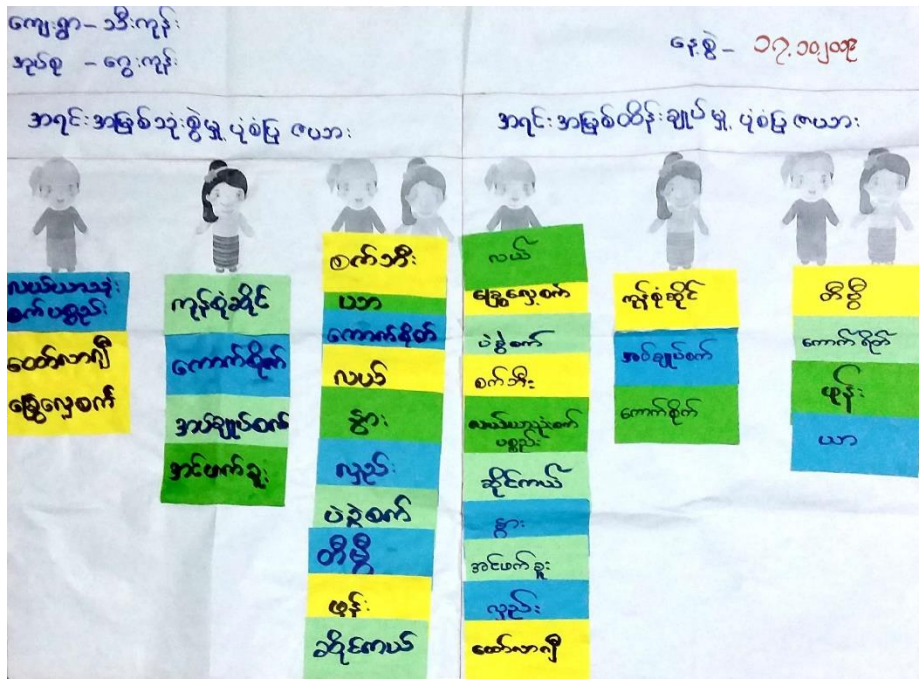 ကျေးရွာ - သီးကုန်း
အုပ်စု - ငွေးကုန်း
နေ့စွဲ - ၁၇.၁၀.၂၀၁၉
အရင်းအမြစ်သုံးစွဲမှု ပုံစံပြ ဇယား
အရင်းအမြစ်ထိန်းချုပ်မှု ပုံစံပြ ဇယား
လယ်ယာသုံး
စက်ပစ္စည်း
ထော်လာဂျီ
ခြွေလှေ့စက်
ကုန်စုံဆိုင်
ကောက်စိုက်
အပ်ချုပ်စက်
အင်ဖက်ခူး
စက်ဘီး
ယာ
ကောက်ရိတ်
လယ်
နွား
လှည်း
ပဲခွဲစက်
တီဗွီ
ဖုန်း
ဆိုင်ကယ်
လယ်
ခြွေလှေ့စက်
ပဲခွဲစက်
စက်ဘီး
လယ်ယာသုံးစက်
ပစ္စည်း
ဆိုင်ကယ်
နွား
အင်ဖက်ခူး
လှည်း
ထော်လာဂျီ
ကုန်စုံဆိုင်
အပ်ချုပ်စက်
ကောက်စိုက်
တီဗွီ
ကောက်ရိတ်
ဖုန်း
ယာ